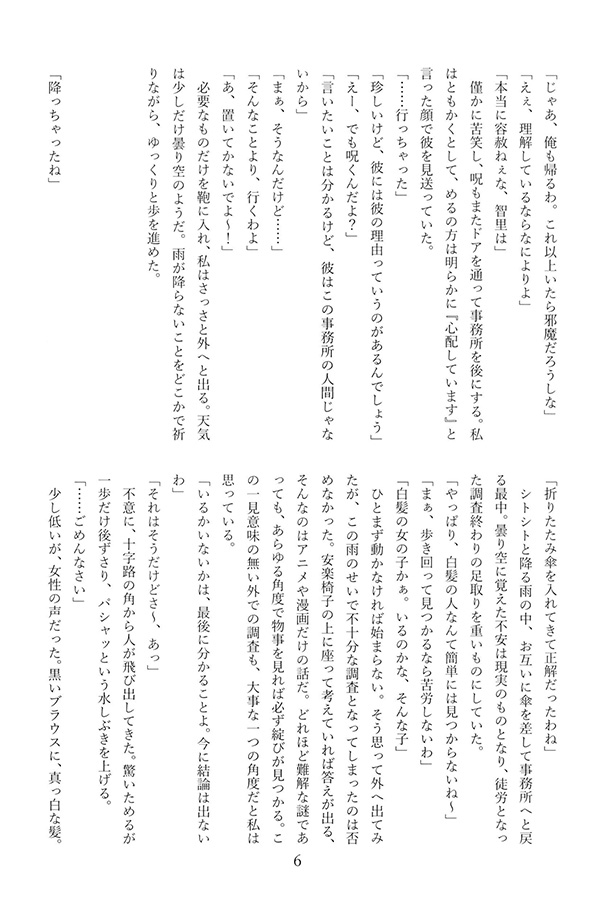 「じゃあ、俺も帰るわ。これ以上いたら邪魔だろうしな」
「えぇ、理解しているならなによりよ」
「本当に容赦ねぇな、智里は」
　僅かに苦笑し、呪もまたドアを通って事務所を後にする。私
はともかくとして、めるの方は明らかに『心配しています』と
言った顔で彼を見送っていた。
「……行っちゃった」
「珍しいけど、彼には彼の理由っていうのがあるんでしょう」
「えー、でも呪くんだよ？」
「言いたいことは分かるけど、彼はこの事務所の人間じゃな
いから」
「まぁ、そうなんだけど……」
「そんなことより、行くわよ」
「あ、置いてかないでよ〜！」
　必要なものだけを鞄に入れ、私はさっさと外へと出る。天気
は少しだけ曇り空のようだ。雨が降らないことをどこかで祈
りながら、ゆっくりと歩を進めた。
「降っちゃったね」
「折りたたみ傘を入れてきて正解だったわね」
　シトシトと降る雨の中、お互いに傘を差して事務所へと戻
る最中。曇り空に覚えた不安は現実のものとなり、徒労となっ
た調査終わりの足取りを重いものにしていた。
「やっぱり、白髪の人なんて簡単には見つからないね〜」
「まぁ、歩き回って見つかるなら苦労しないわ」
「白髪の女の子かぁ。いるのかな、そんな子」
　ひとまず動かなければ始まらない。そう思って外へ出てみ
たが、この雨のせいで不十分な調査となってしまったのは否
めなかった。安楽椅子の上に座って考えていれば答えが出る、
そんなのはアニメや漫画だけの話だ。どれほど難解な謎であ
っても、あらゆる角度で物事を見れば必ず綻びが見つかる。こ
の一見意味の無い外での調査も、大事な一つの角度だと私は
思っている。
「いるかいないかは、最後に分かることよ。今に結論は出ない
わ」
「それはそうだけどさ〜、あっ」
　不意に、十字路の角から人が飛び出してきた。驚いためるが
一歩だけ後ずさり、パシャッという水しぶきを上げる。
「……ごめんなさい」
　少し低いが、女性の声だった。黒いブラウスに、真っ白な髪。
6